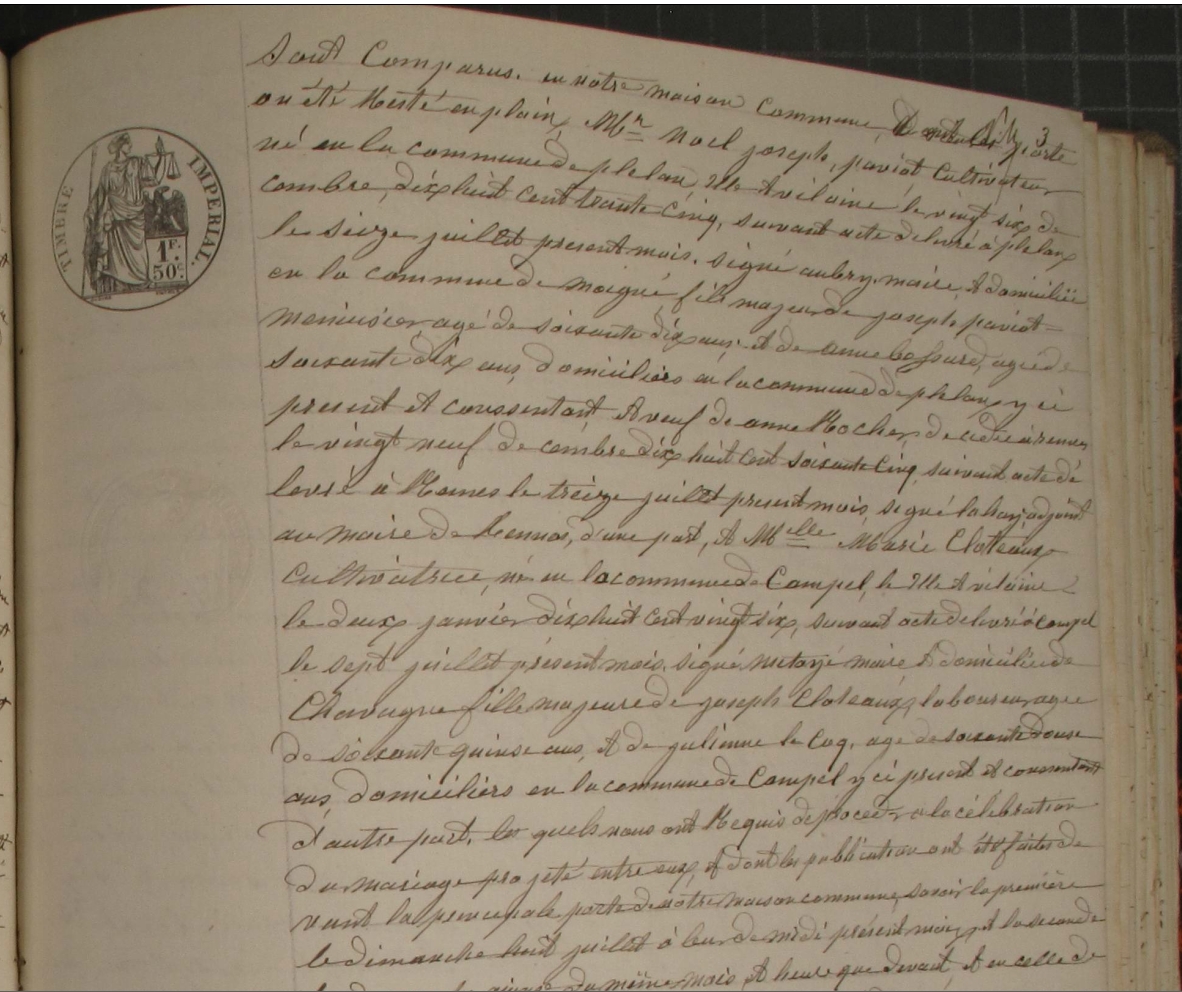 TIMBRE IMPERIAL.
1F.
50c.
3
Sont Comparus. en notre maison Commune, Dont les porte
on été Resté en plain, Mr Noel joseph, paviot Cultivateur
né en la commune de plelan, Ille A vilaine le vingt six de
cembre, dix huit cent trante cinq, suivant acte delivré à plelan
le seize juillet present mois. signé aubry, maire, A domicilié
en la commune de moigné, fils majeur de joseph paviot
menuisier agé de soixante dix ans. A de anne bossard, agé de
soixante dix ans, domiciliers en la commune de plelan, y ci
present A conssentant A veuf de anne Rocher, decedée à rennes
le vingt neuf de cembre dix huit cent soixante cinq, suivant acte dé
levré à Rennes le treize juillet present mois, segné lahay, adjoint
au maire de Rennes, d'une part, A Melle Marie Cloteaux
Cultivatrice, né en la commune de Campel, le Ille A vilaine
le deux janvier dix huit cent vingt six, suivant acte delivré à Campel
le sept juillet présent mois. signé metayé maire A domiciliée de
Chavagne fille majeure de joseph Cloteaux, laboureur agée
de soixante quinse ans, A de julienne le Coq, age de soixante douse
ans, domiciliers en la commune de Campel y ci present A consentant
d'autre part, les quels nous ont Requis de procéder a la célébration
du mariage projeté entre eux, A dont les publication ont été faites de
vant la principale porte de notre maison commune, savoir la première
le dimanche huit juillet à leur de midi présent mois, et la seconde
du même mois, A heure que devant, A en celle de